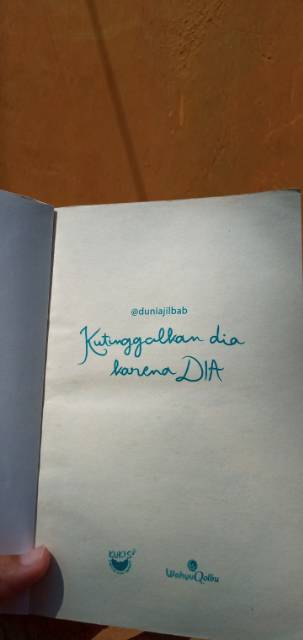 @duniajilbab
Kutinggalkan dia
karena DIA
WahyuQolbu